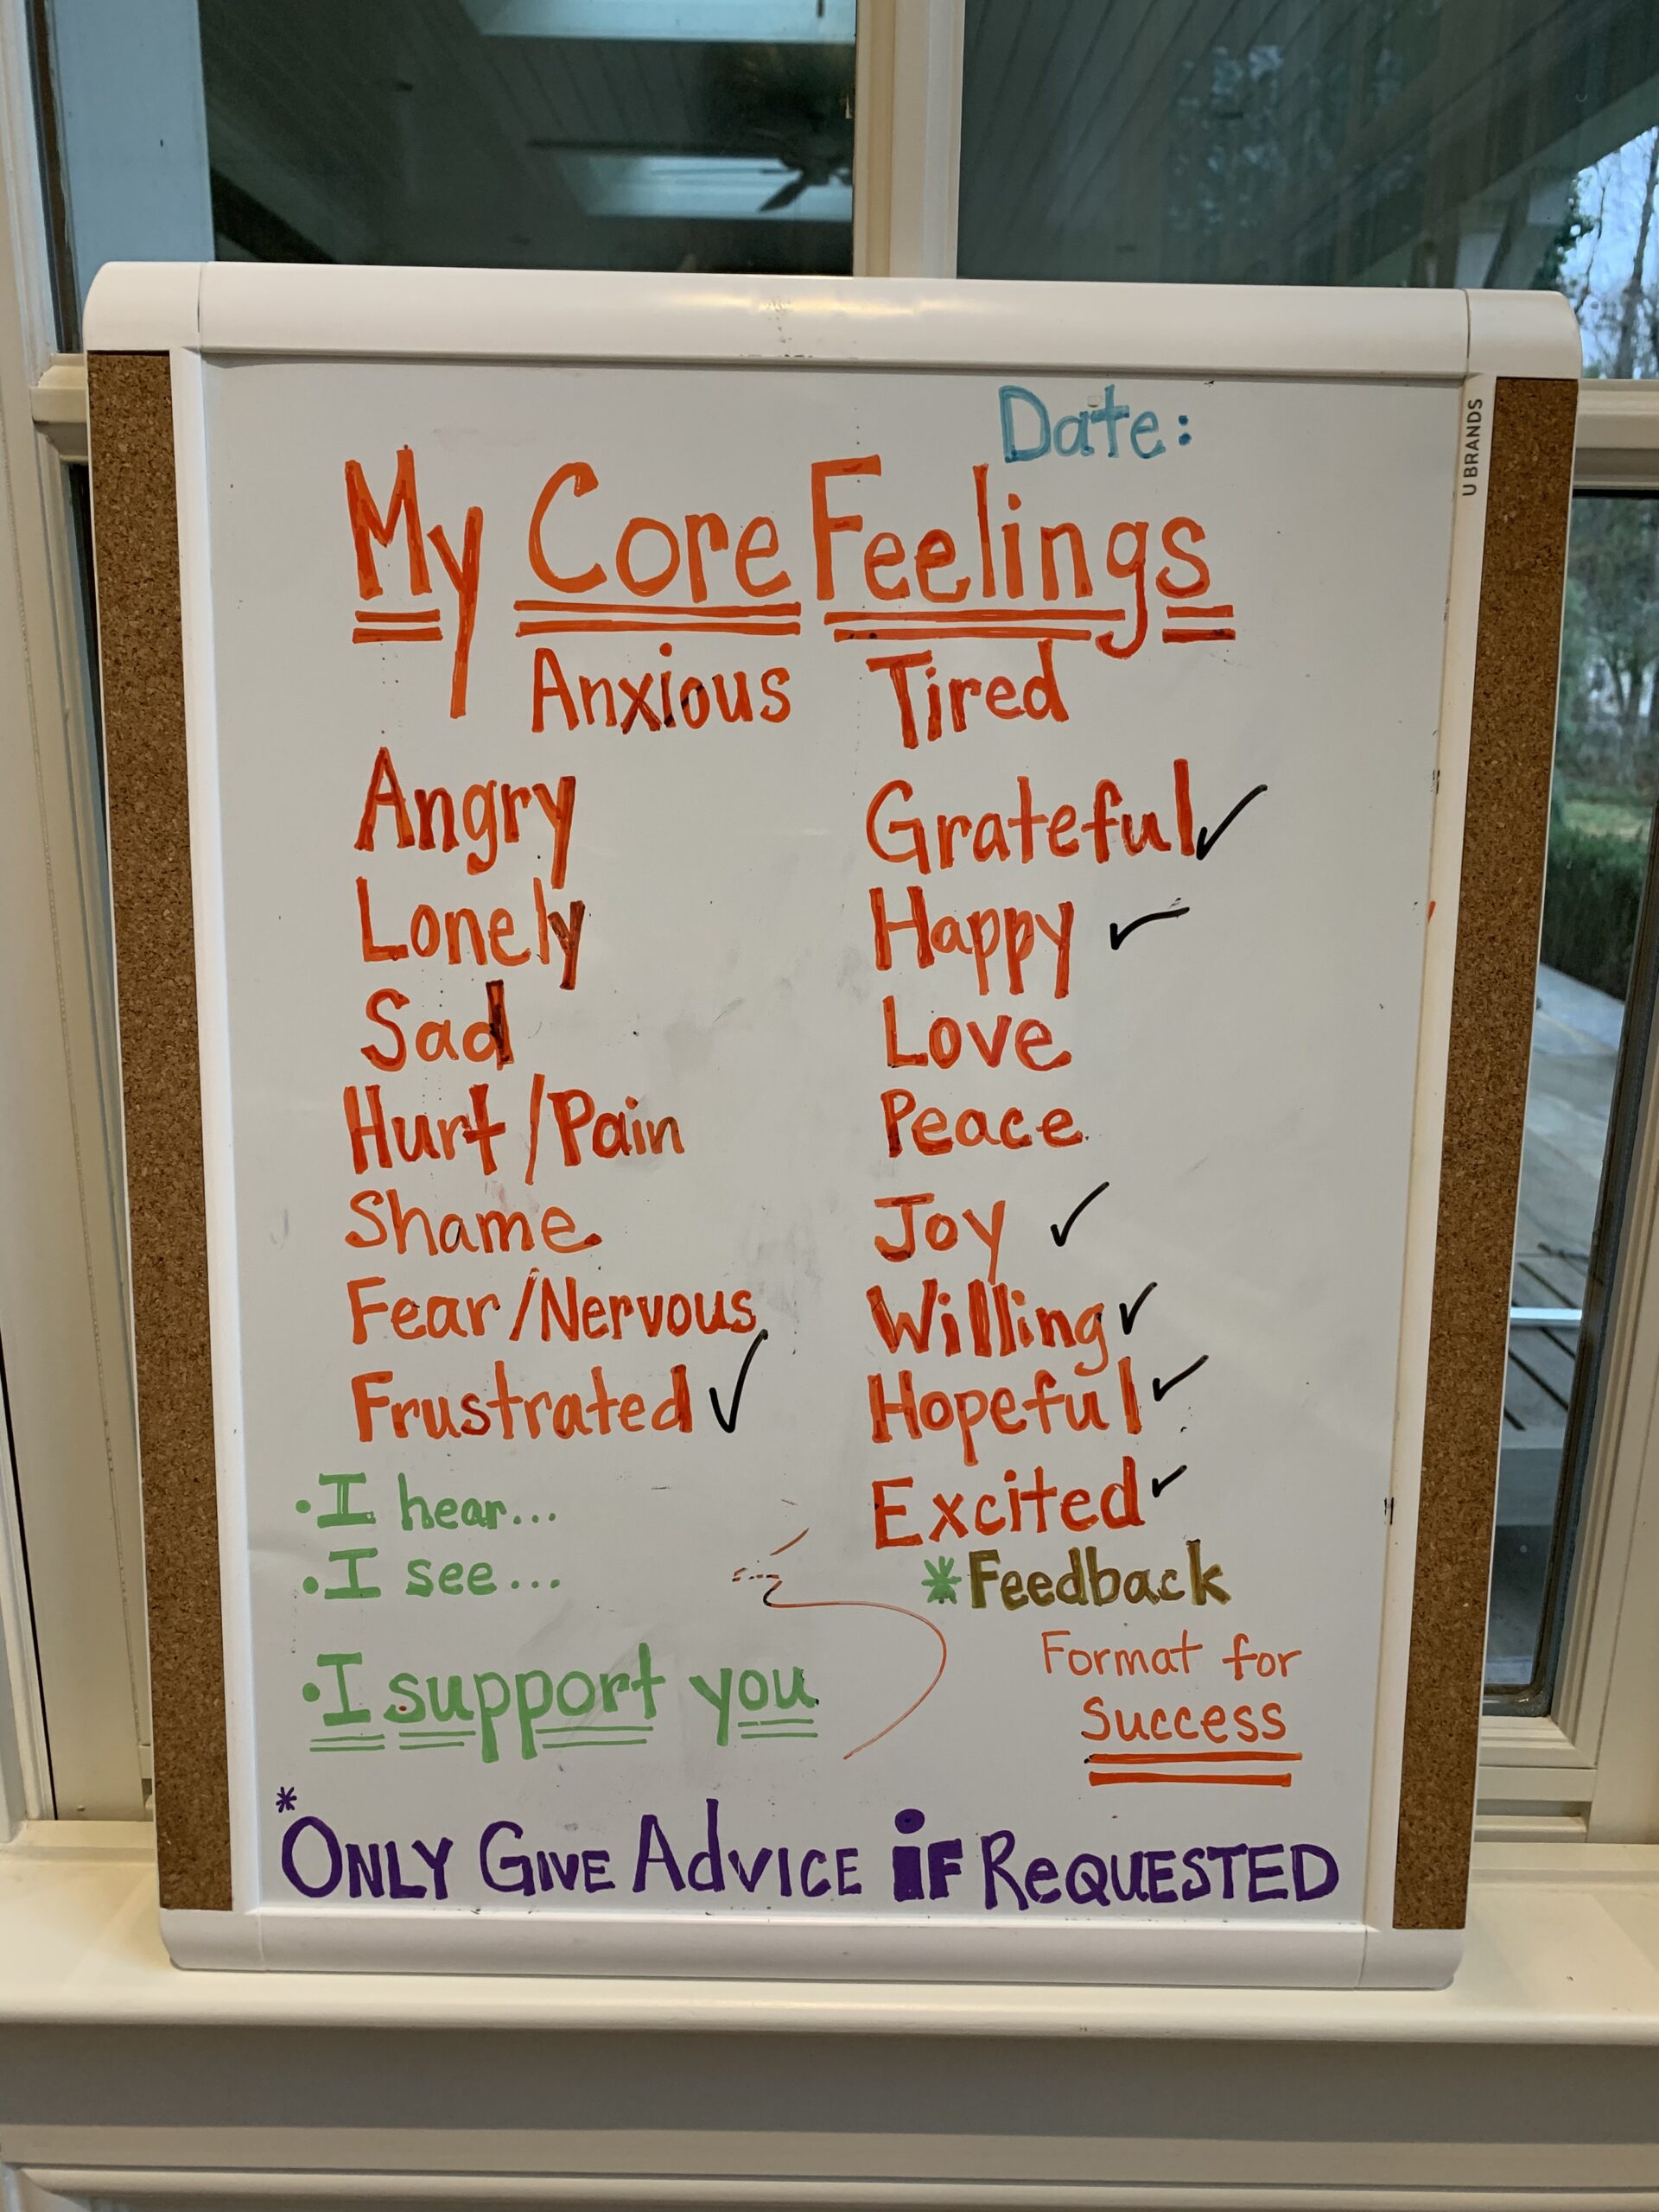 Date:
U BRANDS
My Core Feelings
Anxious Tired
Angry
Lonely
Sad
Hurt/Pain
Shame
Fear/Nervous
Frustrated ✓
Grateful ✓
Happy ✓
Love
Peace
Joy ✓
Willing ✓
Hopeful ✓
Excited ✓
• I hear...
• I see...
• I support you
*Feedback
Format for
Success
*
ONLY GIVE AdVICE iF ReQUESTED